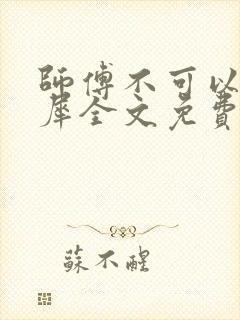 師傅不可以
犀全文免費
蘇不醒